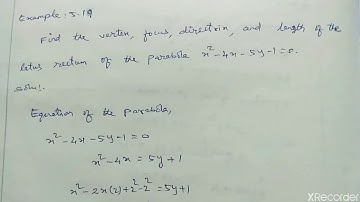 Example: 5.19
Find the vertex, focus, directrix, and length of the
latus rectum of the parabola x²-4x-5y-1=0.
Soln:
Equation of the parabola,
x²-4x-5y-1=0
x²-4x = 5y+1
x²-2x(2)+2²-2² = 5y+1
XRecorder